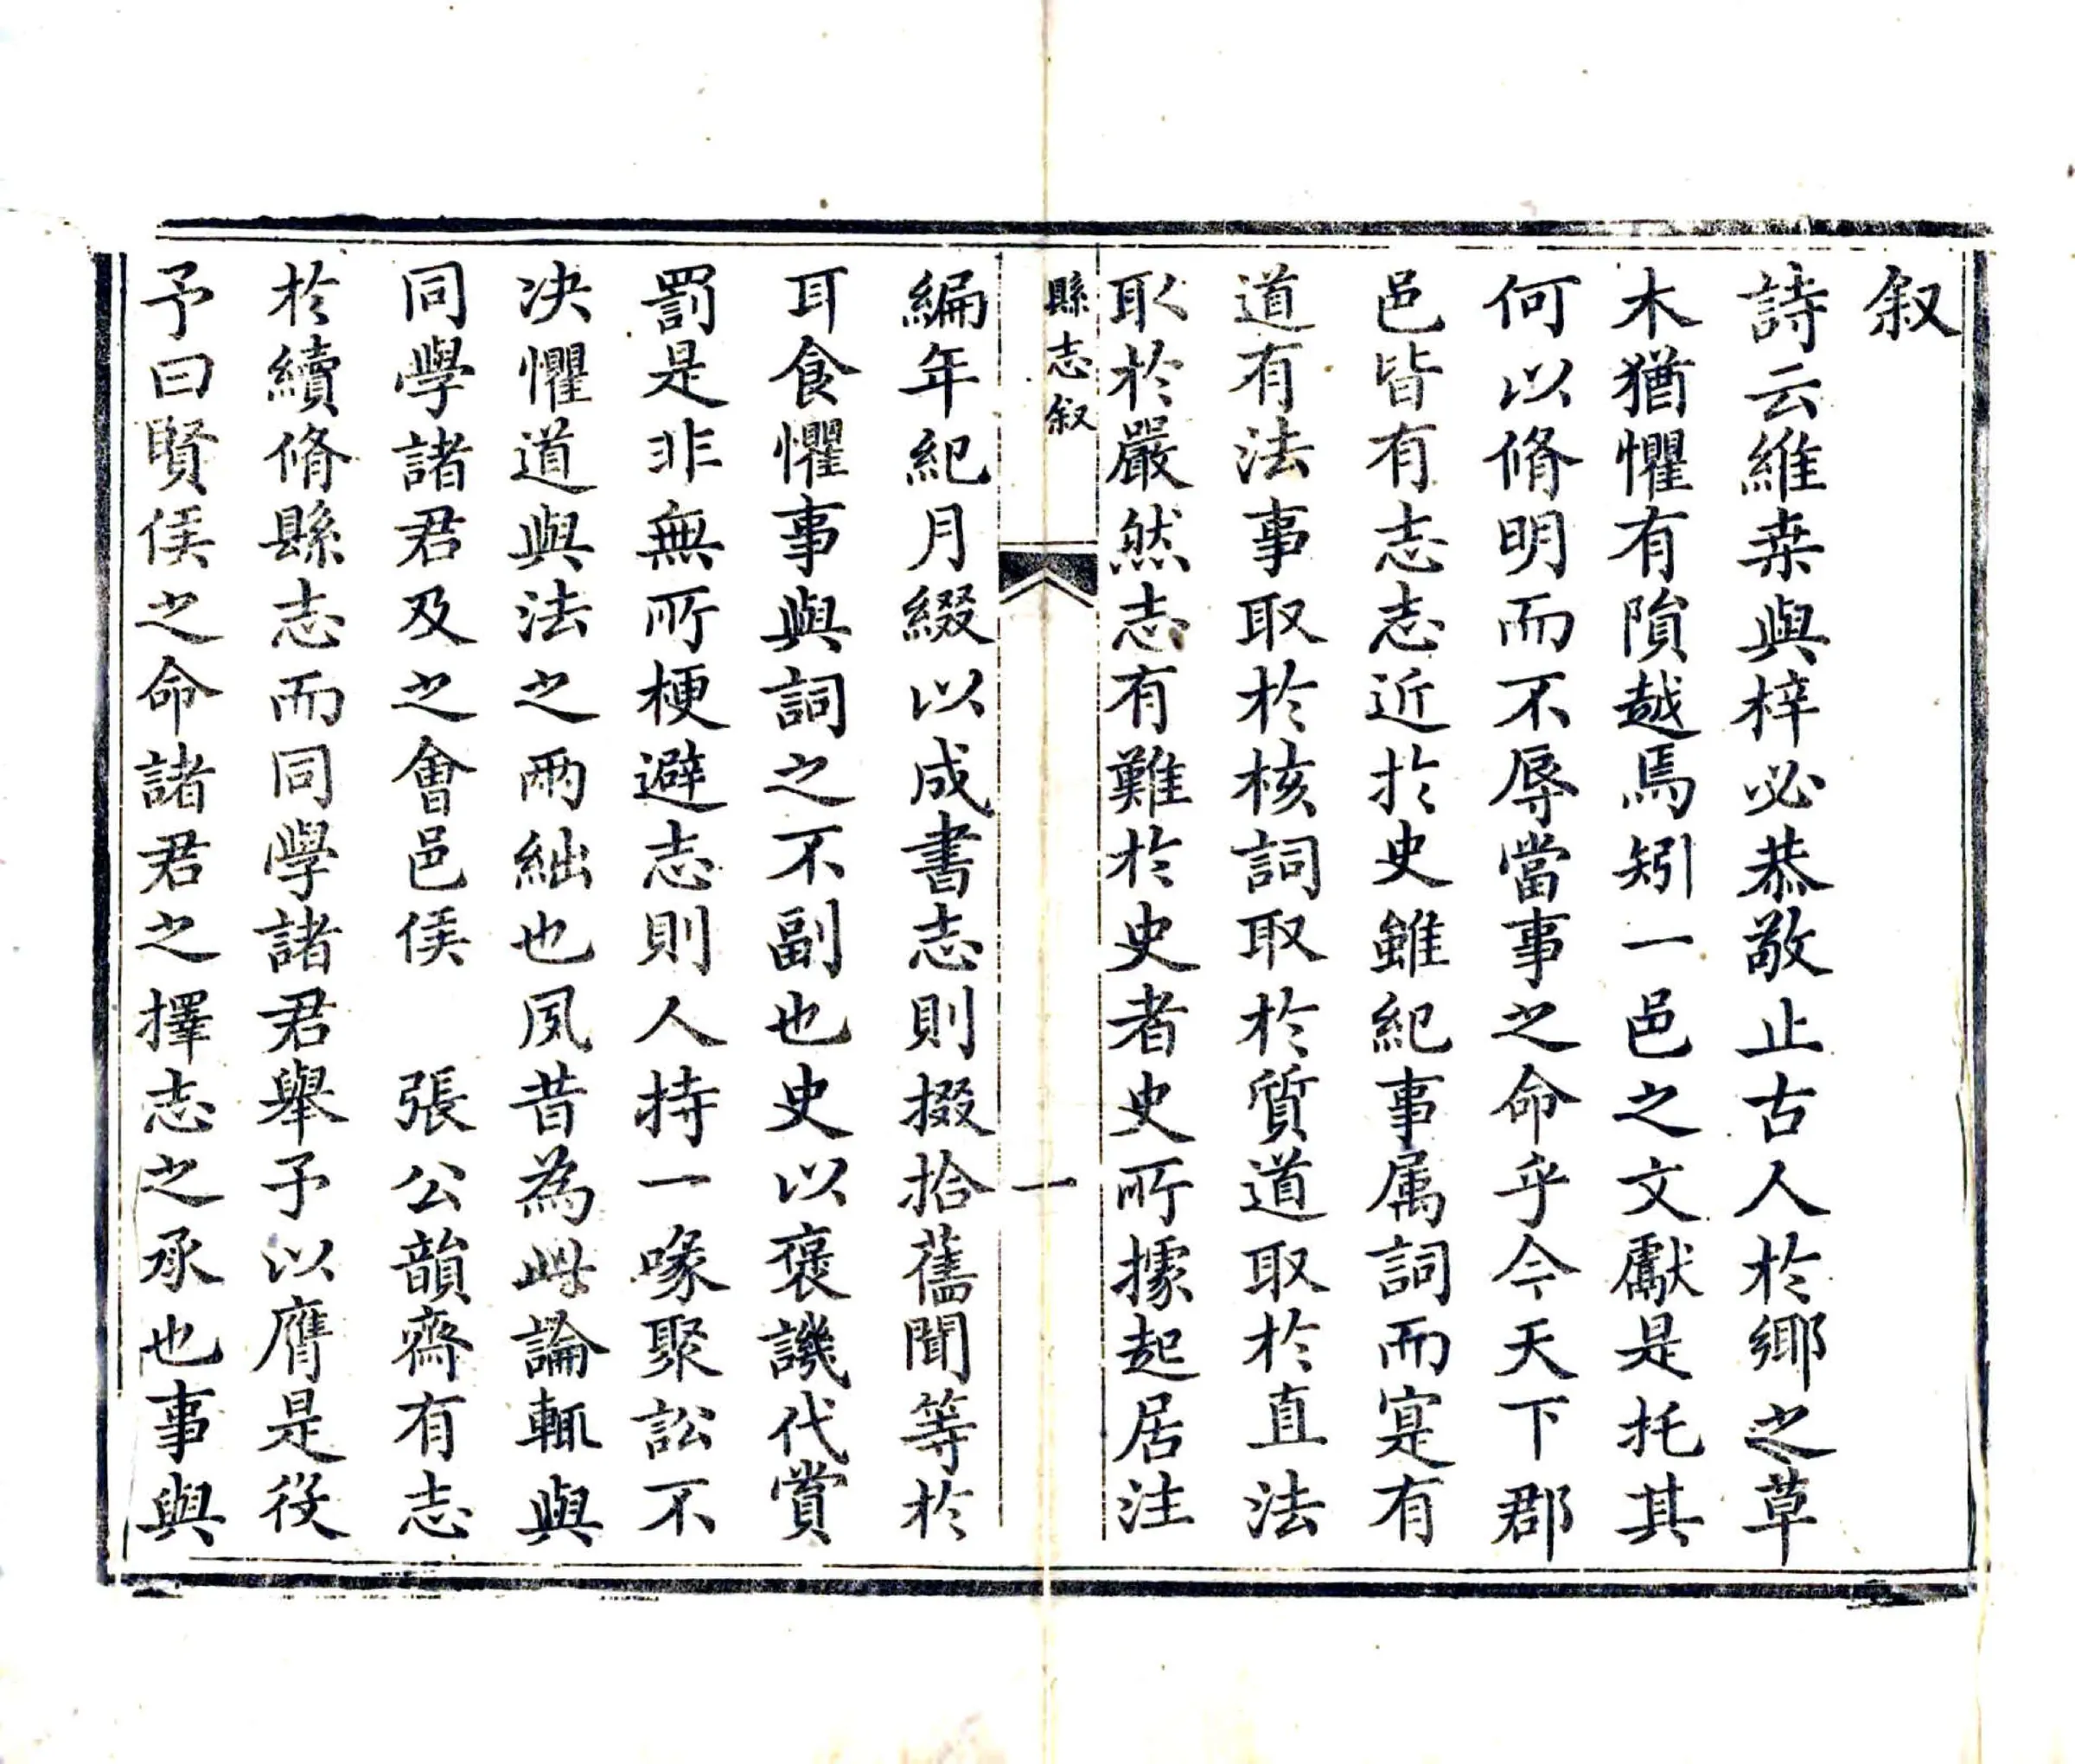 叙
詩云維桒與梓必恭敬止古人於鄉之草
木猶懼有隕越焉矧一邑之文獻是托其
何以脩明而不辱當事之命乎今天下郡
邑皆有志志近於史雖紀事属詞而寔有
道有法事取於核詞取於質道取於直法
取於嚴然志有難於史者史所據起居注
縣志叙
一
編年紀月綴以成書志則掇拾舊聞等於
耳食懼事與詞之不副也史以褒譏代賞
罰是非無所梗避志則人持一喙聚訟不
决懼道與法之兩絀也夙昔為此論輒與
同學諸君及之會邑侯　張公韻齋有志
於續脩縣志而同學諸君舉予以膺是役
予曰賢侯之命諸君之擇志之承也事與